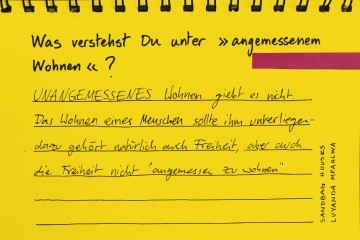 Was verstehst Du unter »angemessenem
Wohnen«?
UNANGEMESSENES Wohnen giebt es nicht.
Das Wohnen eines Menschen sollte ihm unterliegen-
dazu gehört natürlich auch Freiheit, aber auch
die Freiheit nicht "angemessen zu wohnen"
SANDBAG HOUSES
LUYANDA MPAHLWA